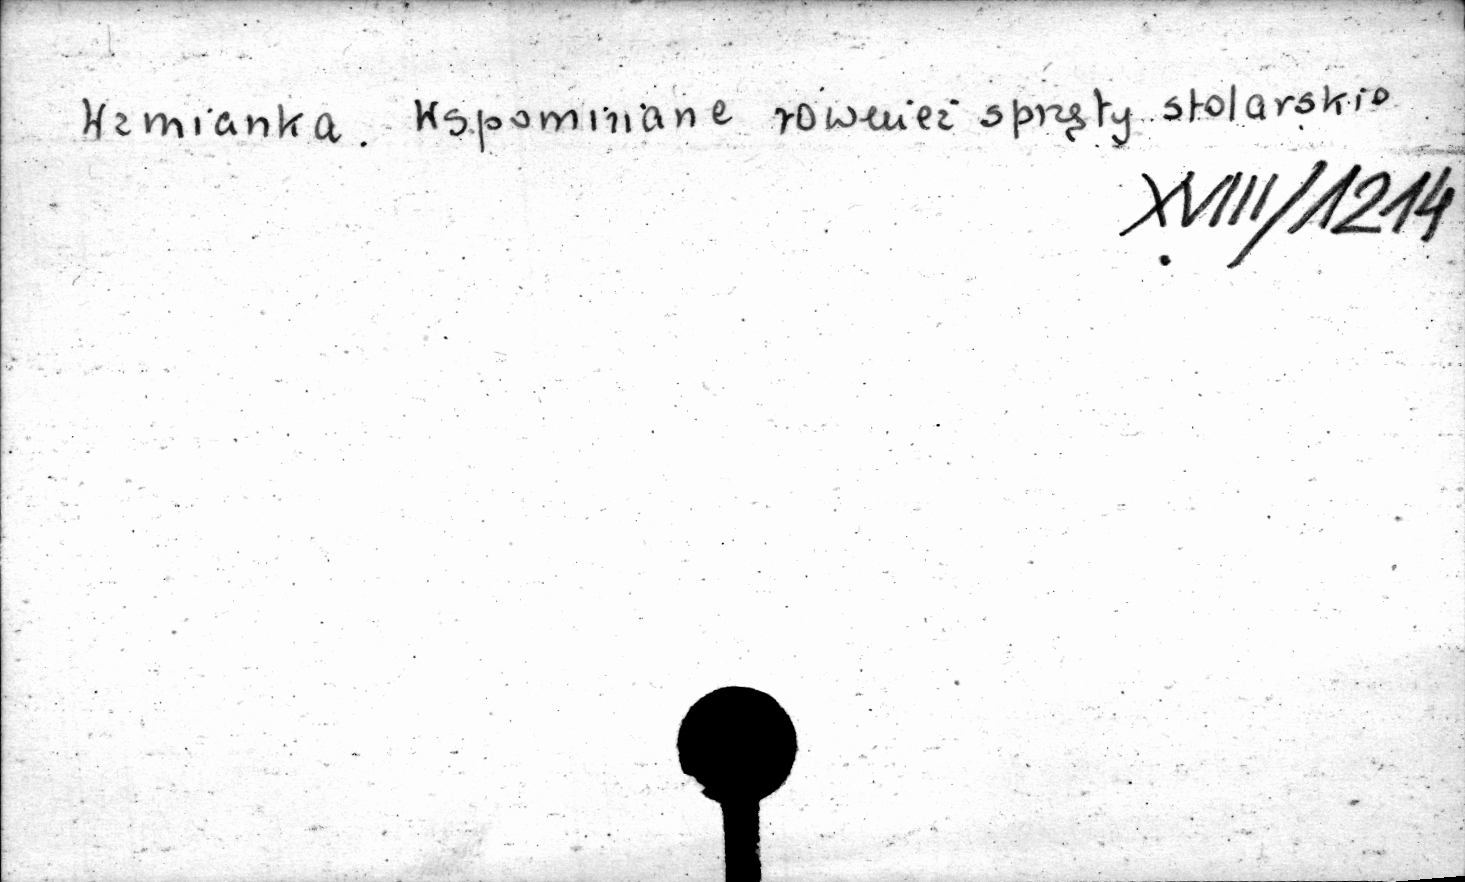 Wzmianka. Wspominane również sprzęty stolarskie
XVIII/1214